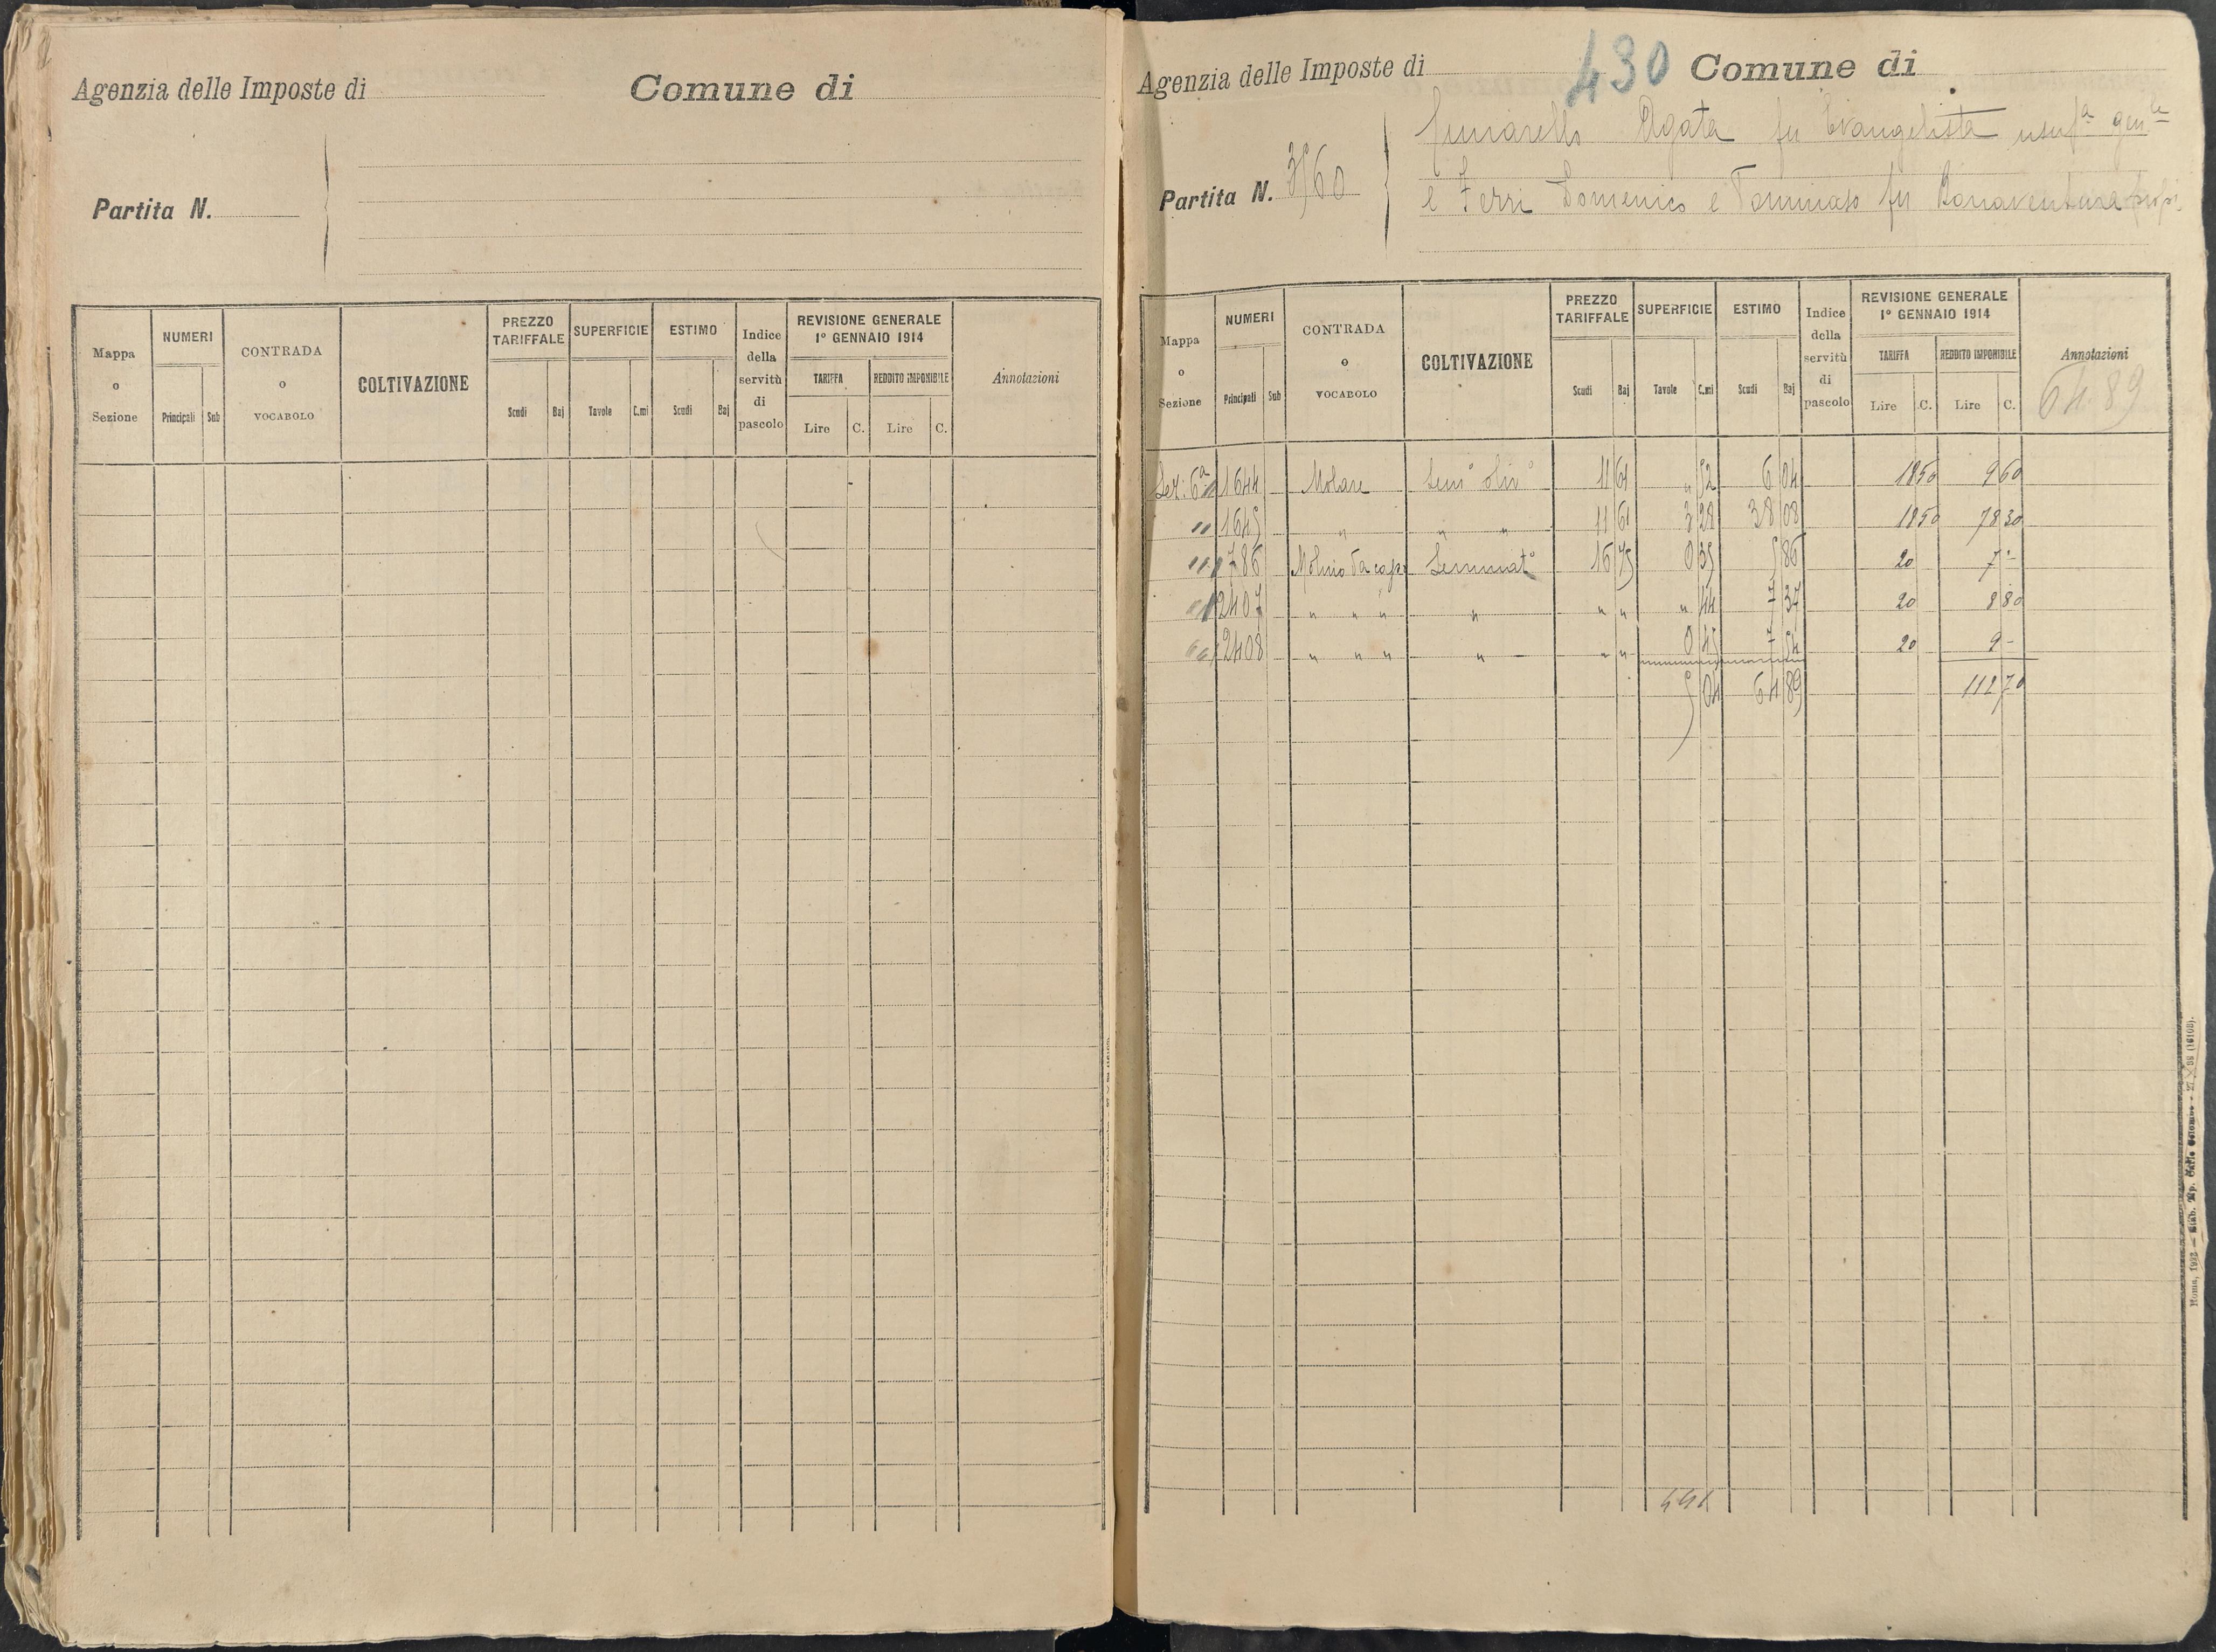 Agenzia delle Imposte di
Comune di
Partita N.
Mappa o Sezione
NUMERI
Principali Sub
CONTRADA o VOCABOLO
COLTIVAZIONE
PREZZO TARIFFALE
Scudi Baj
SUPERFICIE
Tavole C.mi
ESTIMO
Scudi Baj
Indice della servitù di pascolo
REVISIONE GENERALE
1° GENNAIO 1914
TARIFFA REDDITO IMPONIBILE
Lire C. Lire C.
Annotazioni
Agenzia delle Imposte di
430
Comune di
Agata fu Evangelista usuf.a gen.le
Partita N. 3560
e Ferri Domenico e Tommaso fu Bonaventura propi.
Mappa o Sezione
NUMERI
Principali Sub
CONTRADA o VOCABOLO
COLTIVAZIONE
PREZZO TARIFFALE
Scudi Baj
SUPERFICIE
Tavole C.mi
ESTIMO
Scudi Baj
Indice della servitù di pascolo
REVISIONE GENERALE
1° GENNAIO 1914
TARIFFA REDDITO IMPONIBILE
Lire C. Lire C.
Annotazioni
64.89
Sez: 6a 1644 Molare Semo olivo 11 61 " 52 6 04 18 50 9 60
" 1645 " " " 11 61 3 28 38 08 18 50 78 30
" 1786 Molino da capo Seminato 16 75 0 35 5 86 20 7 -
" 2407 " " " " " " " 44 7 37 20 8 80
" 2408 " " " " " " 0 45 7 54 20 9 -
5 04 64 89 112 70
Roma, 1922 — Stab. Tip. Carlo Colombo